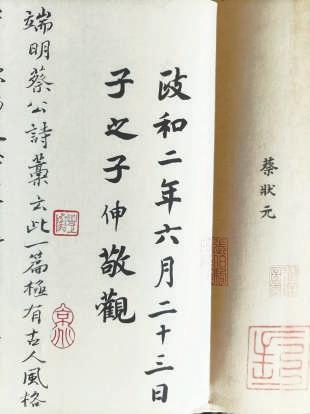 蔡狀元
政和二年六月二十三日
子之子伸敬觀
端明蔡公詩藁云此一篇極有古人風格